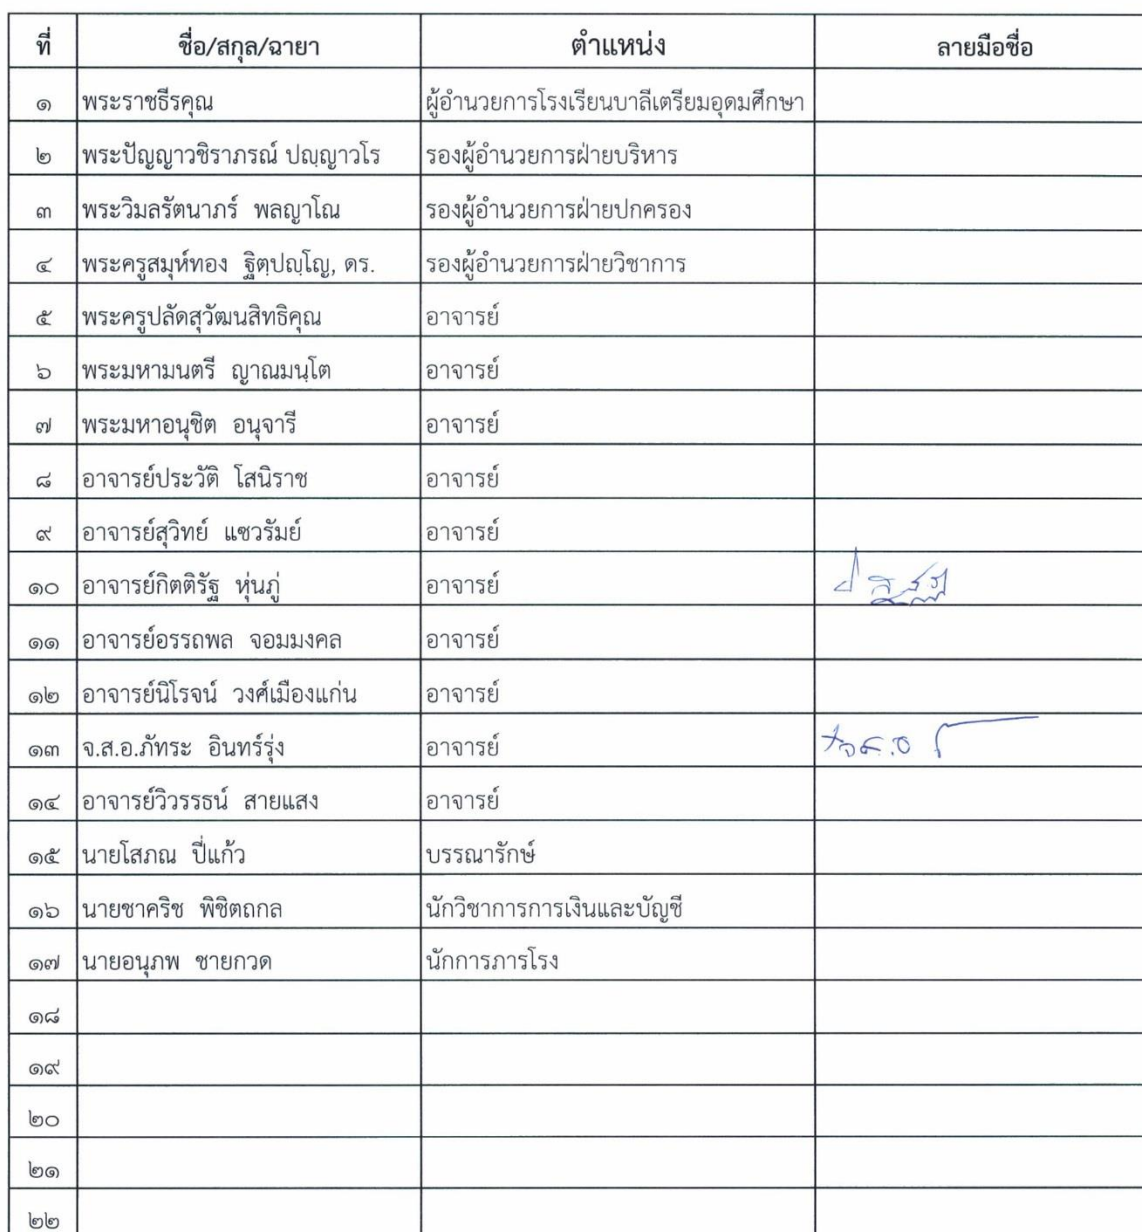 ที่ ชื่อ/สกุล/ฉายา ตำแหน่ง ลายมือชื่อ
๑ พระราชธีรคุณ ผู้อำนวยการโรงเรียนบาลีเตรียมอุดมศึกษา
๒ พระปัญญาวชิราภรณ์ ปญฺญาวโร รองผู้อำนวยการฝ่ายบริหาร
๓ พระวิมลรัตนาภร์ พลญาโณ รองผู้อำนวยการฝ่ายปกครอง
๔ พระครูสมุห์ทอง ฐิตฺปญฺโญ, ดร. รองผู้อำนวยการฝ่ายวิชาการ
๕ พระครูปลัดสุวัฒนสิทธิคุณ อาจารย์
๖ พระมหามนตรี ญาณมนฺโต อาจารย์
๗ พระมหาอนุชิต อนุจารี อาจารย์
๘ อาจารย์ประวัติ โสนิราช อาจารย์
๙ อาจารย์สุวิทย์ แซวรัมย์ อาจารย์
๑๐ อาจารย์กิตติรัฐ หุ่นภู่ อาจารย์
๑๑ อาจารย์อรรถพล จอมมงคล อาจารย์
๑๒ อาจารย์นิโรจน์ วงศ์เมืองแก่น อาจารย์
๑๓ จ.ส.อ.ภัทระ อินทร์รุ่ง อาจารย์
๑๔ อาจารย์วิวรรธน์ สายแสง อาจารย์
๑๕ นายโสภณ ปี่แก้ว บรรณารักษ์
๑๖ นายชาคริช พิชิตถกล นักวิชาการการเงินและบัญชี
๑๗ นายอนุภพ ชายกวด นักการภารโรง
๑๘
๑๙
๒๐
๒๑
๒๒